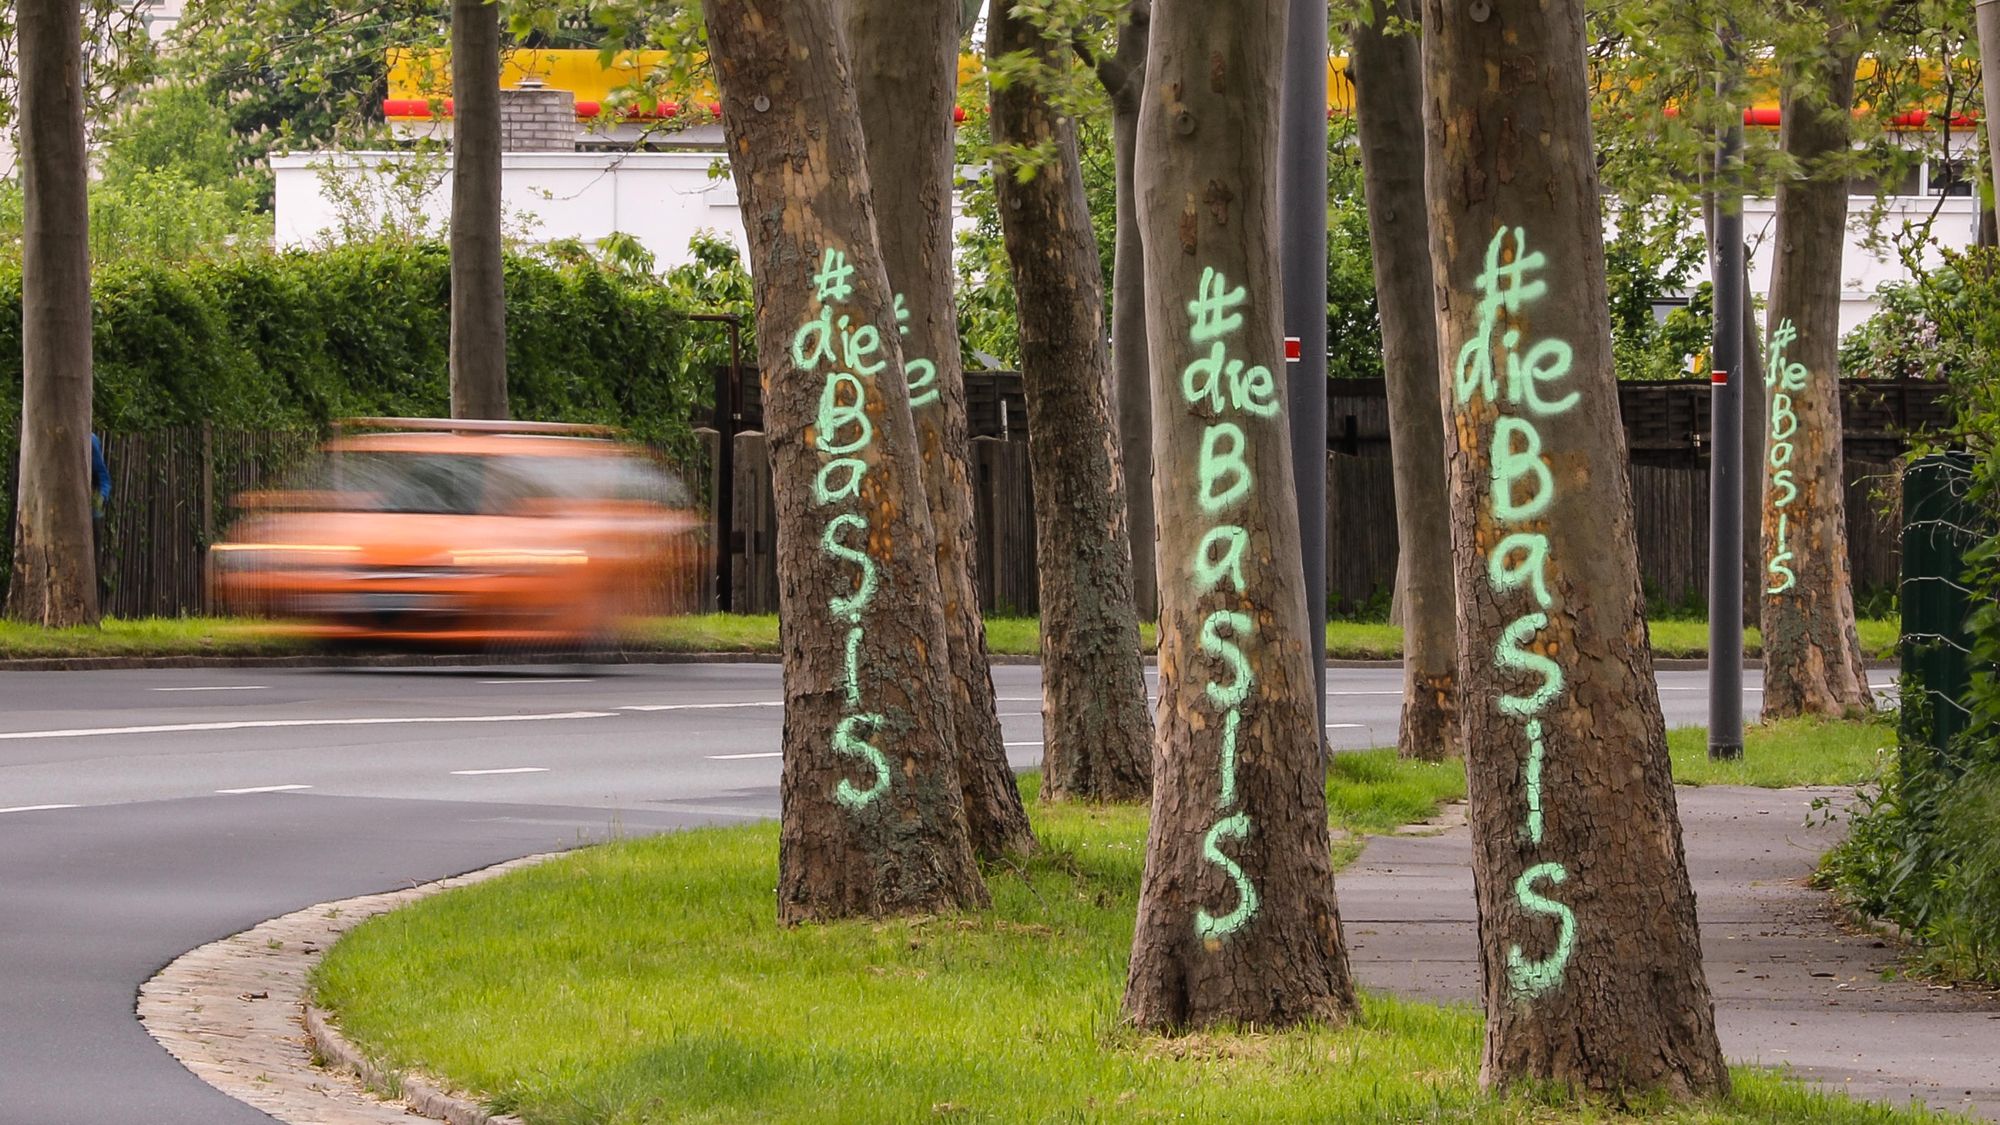 #dieBasis
#dieBasis
#dieBasis
#dieBasis